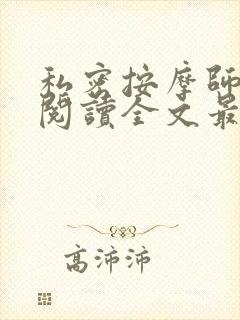 私密按摩師
閱讀全文最
高沛沛